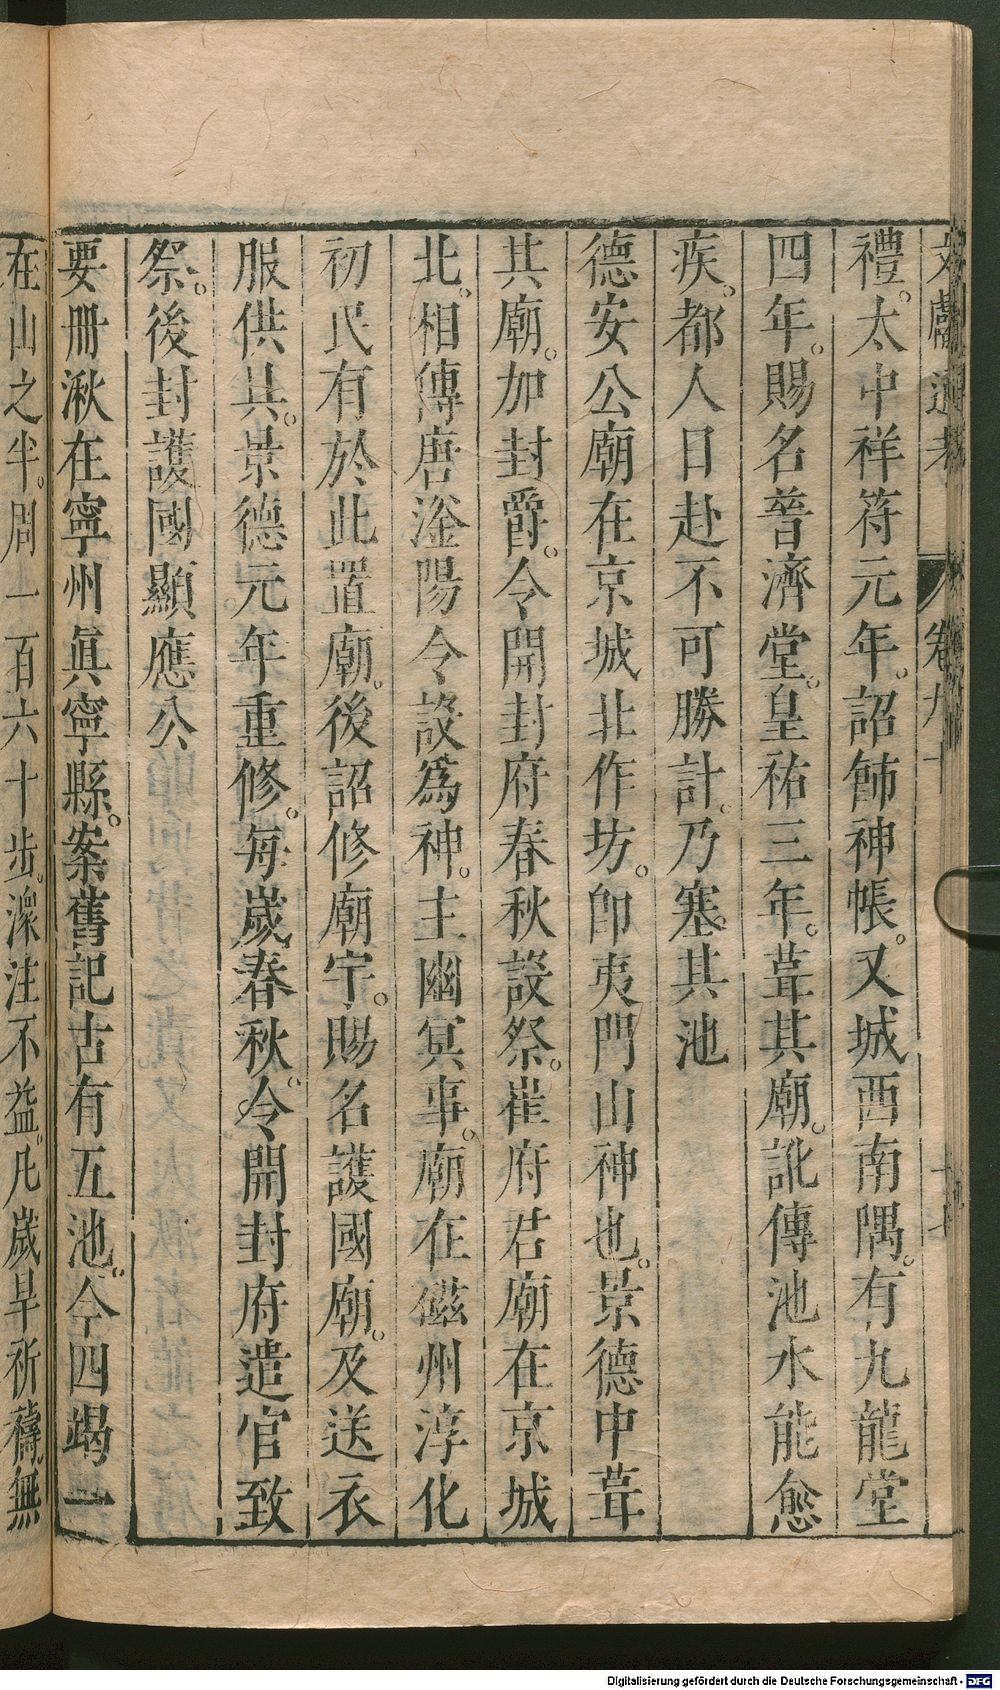 文獻通考　卷九十
禮。太中祥符元年。詔飾神帳。又城西南隅。有九龍堂
四年。賜名普濟堂。皇祐三年。葺其廟。訛傳池水能愈
疾。都人日赴不可勝計。乃塞其池
德安公廟在京城北作坊。卽夷門山神也。景德中葺
其廟。加封爵。令開封府春秋設祭。崔府君廟在京城
北。相傳唐滏陽令設爲神。主幽冥事。廟在磁州淳化
初民有於此置廟。後詔修廟宇。賜名護國廟。及送衣
服供具。景德元年重修。每歲春秋。令開封府遣官致
祭。後封護國顯應公
要冊湫在寧州眞寧縣。案舊記古有五池。今四竭一
在山之半。周一百六十步。潨注不益。凡歲旱祈禱無
Digitalisierung gefördert durch die Deutsche Forschungsgemeinschaft - DFG